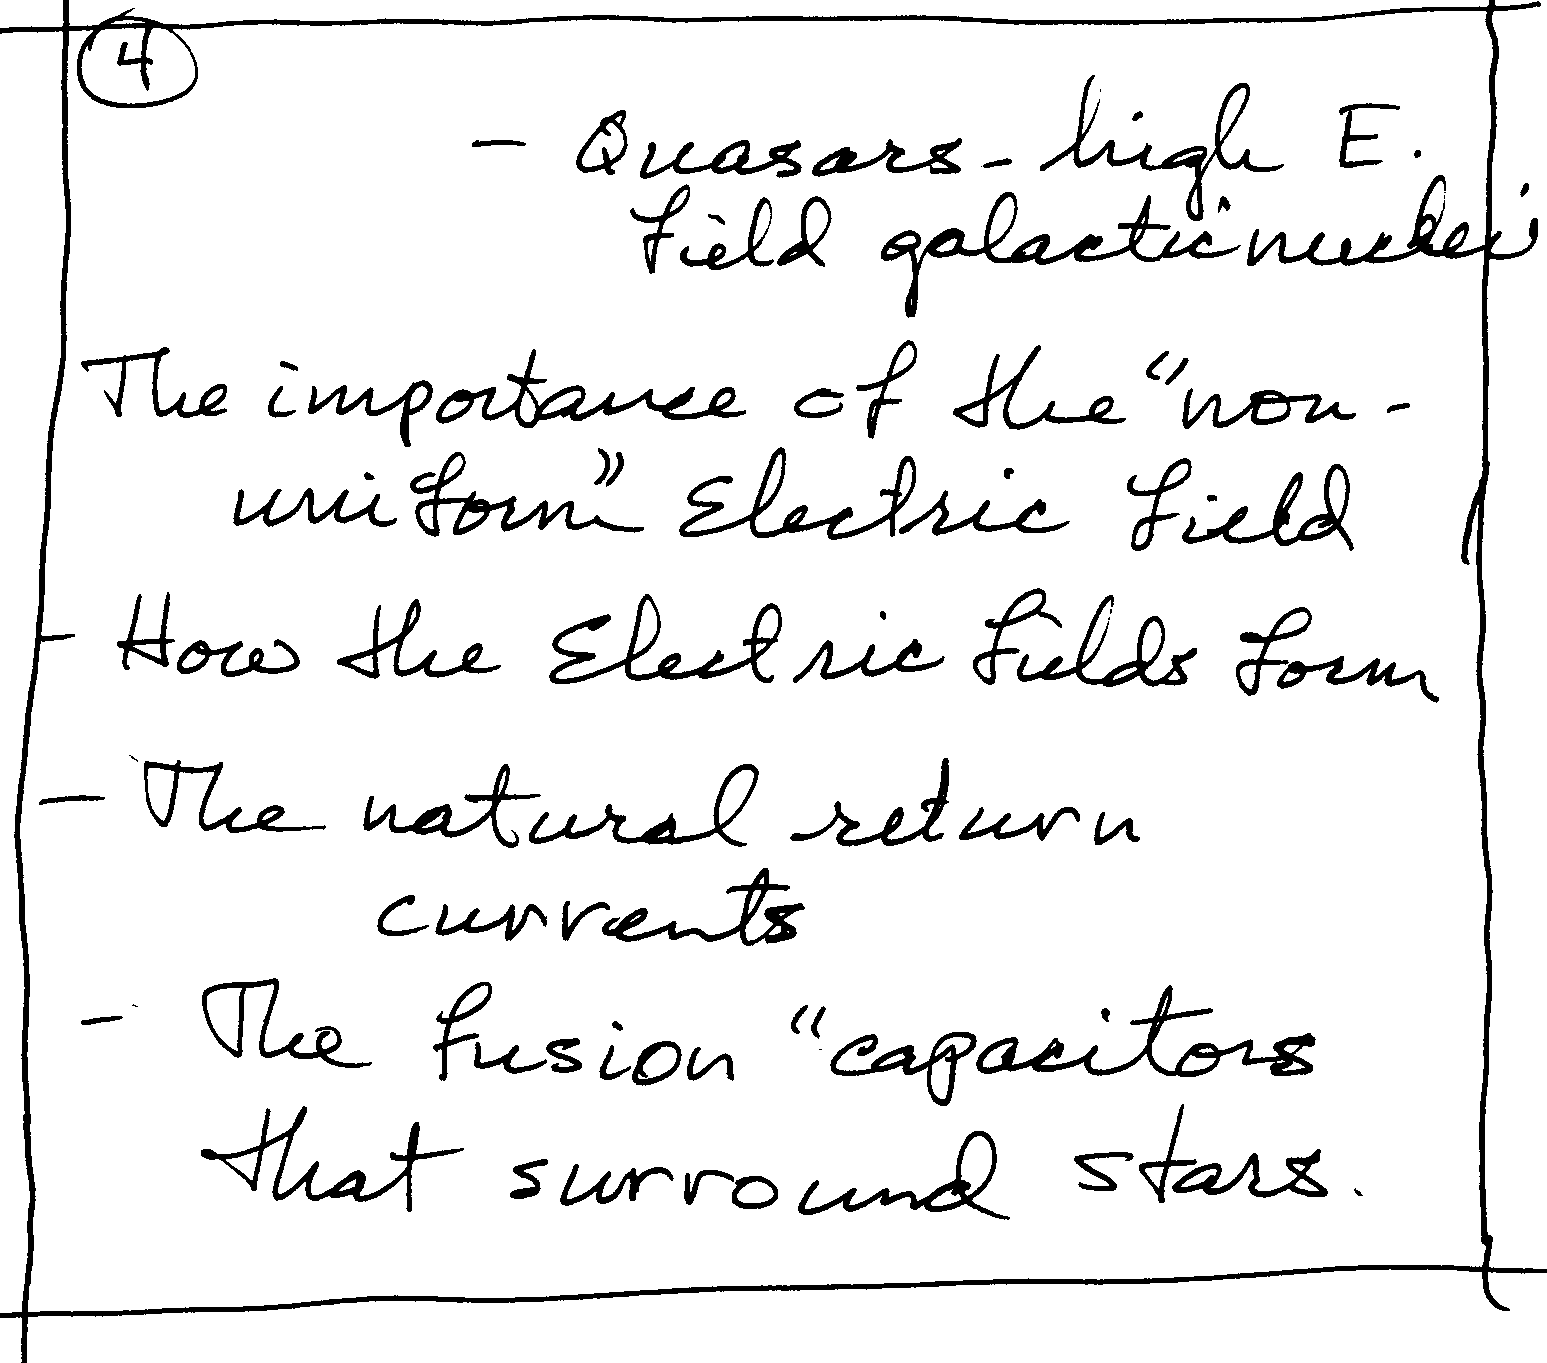 4
- Quasars - high E.
field galactic nuclei
The importance of the "non-
uniform" Electric field
- How the Electric fields form
- The natural return
currents
- The fusion "capacitors
that surround stars.